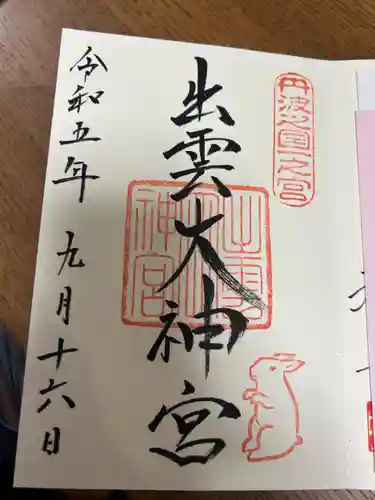 丹波之国一之宮
出雲大神宮
出雲大神宮
令和五年 九月十六日